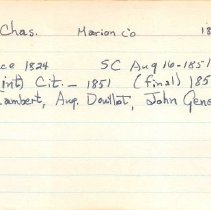 Chas. Marion Co 18
ce 1824 SC Aug 16-1851
int) Cit. - 1851 (final) 185
ambert, Aug. Douillot, John Geno